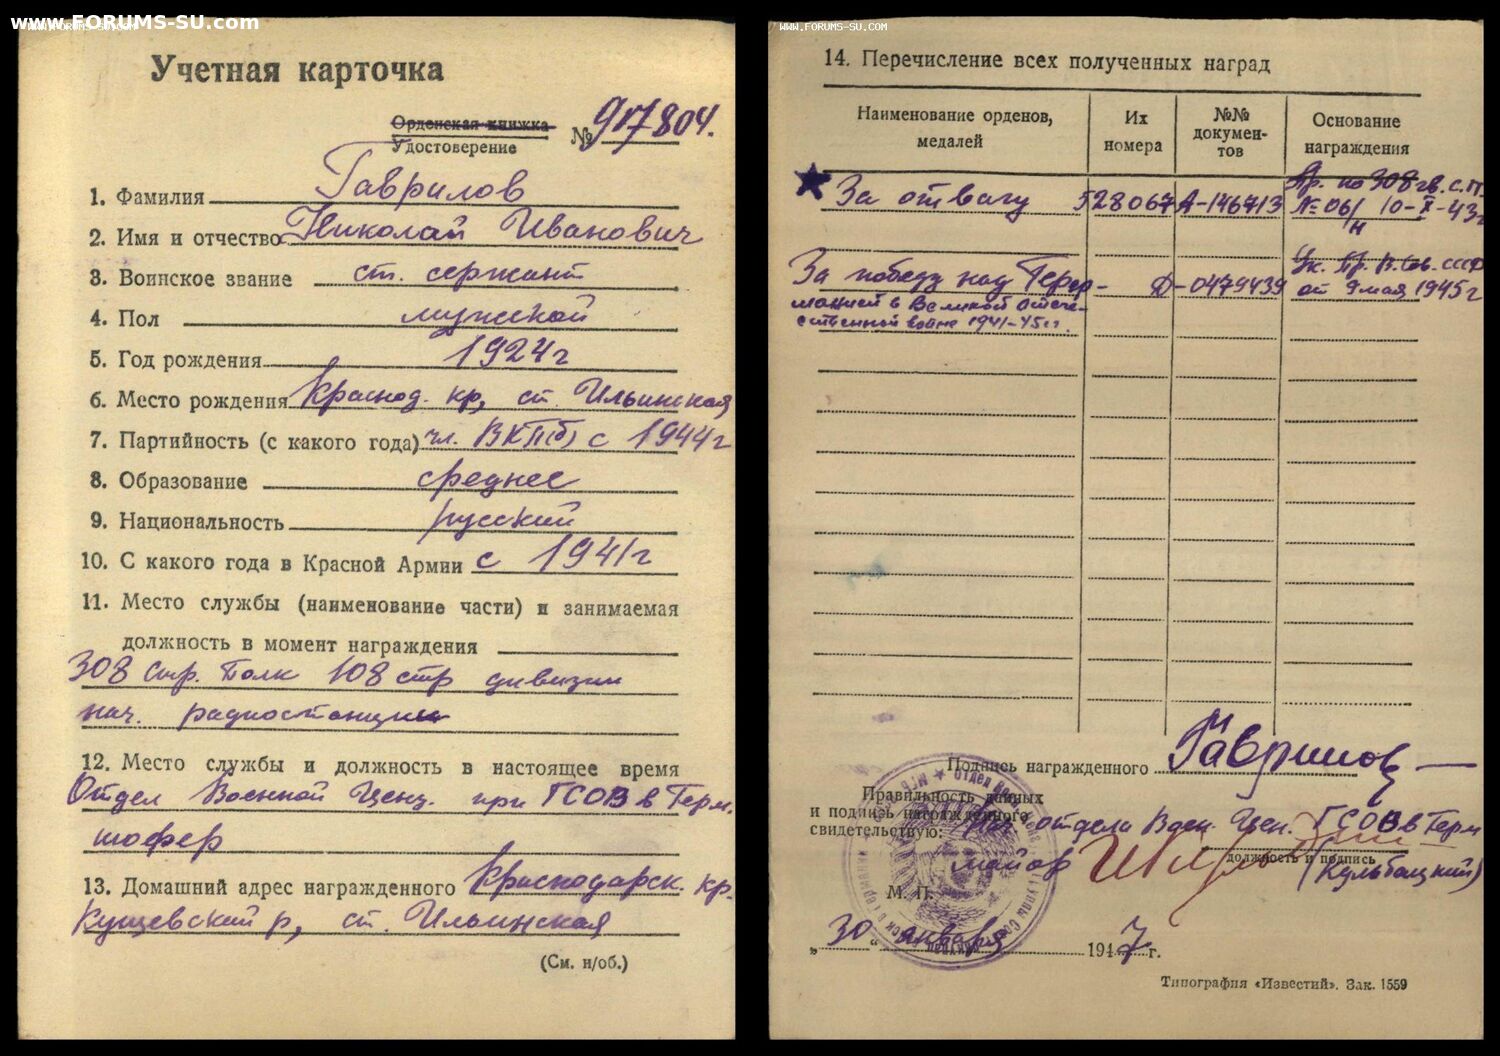 www.FORUMS-SU.com
Учетная карточка
Орденская книжка
Удостоверение № 917804.
1. Фамилия Гаврилов
2. Имя и отчество Николай Иванович
3. Воинское звание ст. сержант
4. Пол мужской
5. Год рождения 1924г
6. Место рождения Краснод. кр, ст. Ильинская
7. Партийность (с какого года) чл. ВКП(б) с 1944г
8. Образование среднее
9. Национальность русский
10. С какого года в Красной Армии с 1941г
11. Место службы (наименование части) и занимаемая
должность в момент награждения
308 стр. Полк 108 стр дивизии
нач. радиостанции
12. Место службы и должность в настоящее время
Отдел Военной Ценз. при ГСОВ в Герм.
шофер
13. Домашний адрес награжденного Краснодарск. кр.
Кущевский р, ст. Ильинская
(См. н/об.)
www.FORUMS-SU.com
14. Перечисление всех полученных наград
Наименование орденов, медалей
Их номера
№№ докумен-тов
Основание награждения
За отвагу 528067 А-146713 Пр. по 308 гв. с.п.
№ 06/н 10-X-43г
За победу над Гер- Д-0479439 Ук. Пр. В. Сов. СССР
манией в Великой Отече- от 9 мая 1945г
ственной войне 1941-45гг.
Подпись награжденного Гаврилов
Правильность данных
и подпись награжденного
свидетельствую: Нач отдела Воен. Цен. ГСОВ в Герм
майор (Кульбацкий)
должность и подпись
М. П.
„30“ января 1947 г.
Типография «Известий». Зак. 1559